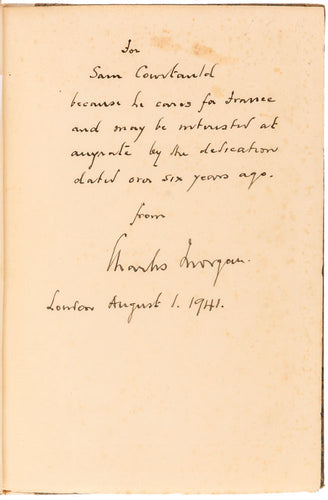 For
Sam Courtauld
because he cares for France
and may be interested at
anyrate by the dedication
dated over six years ago.
from
Charles Morgan.
London August 1. 1941.